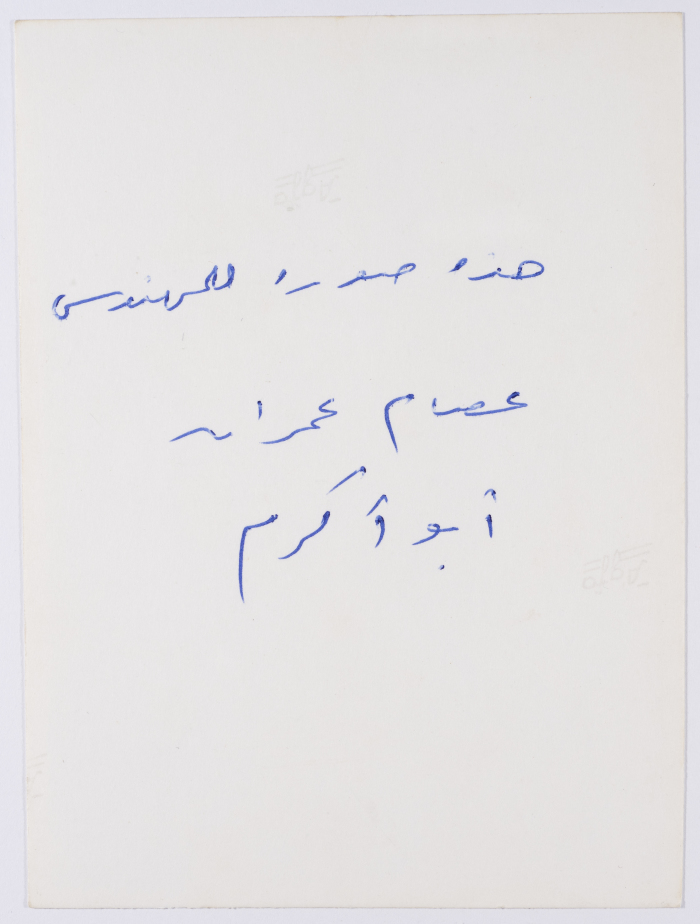 هذه صورة للمهندس
عصام عمران
أبو أكرم